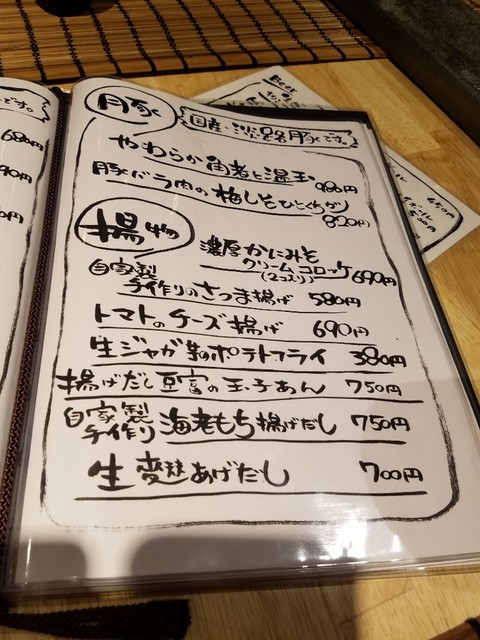 豚
国産・淡路豚です。
やわらか角煮と温玉
980円
豚バラ肉の梅しそひとくちカツ
820円
揚物
濃厚かにみそ
クリームコロッケ
(2コ入り)
690円
自家製
手作りのさつま揚げ 580円
トマトのチーズ揚げ 690円
生ジャガ芋のポテトフライ 380円
揚げだし豆富の玉子あん 750円
自家製
手作り 海老もち揚げだし 750円
生麩あげだし 700円
です。
680円
90円
Beer
450円